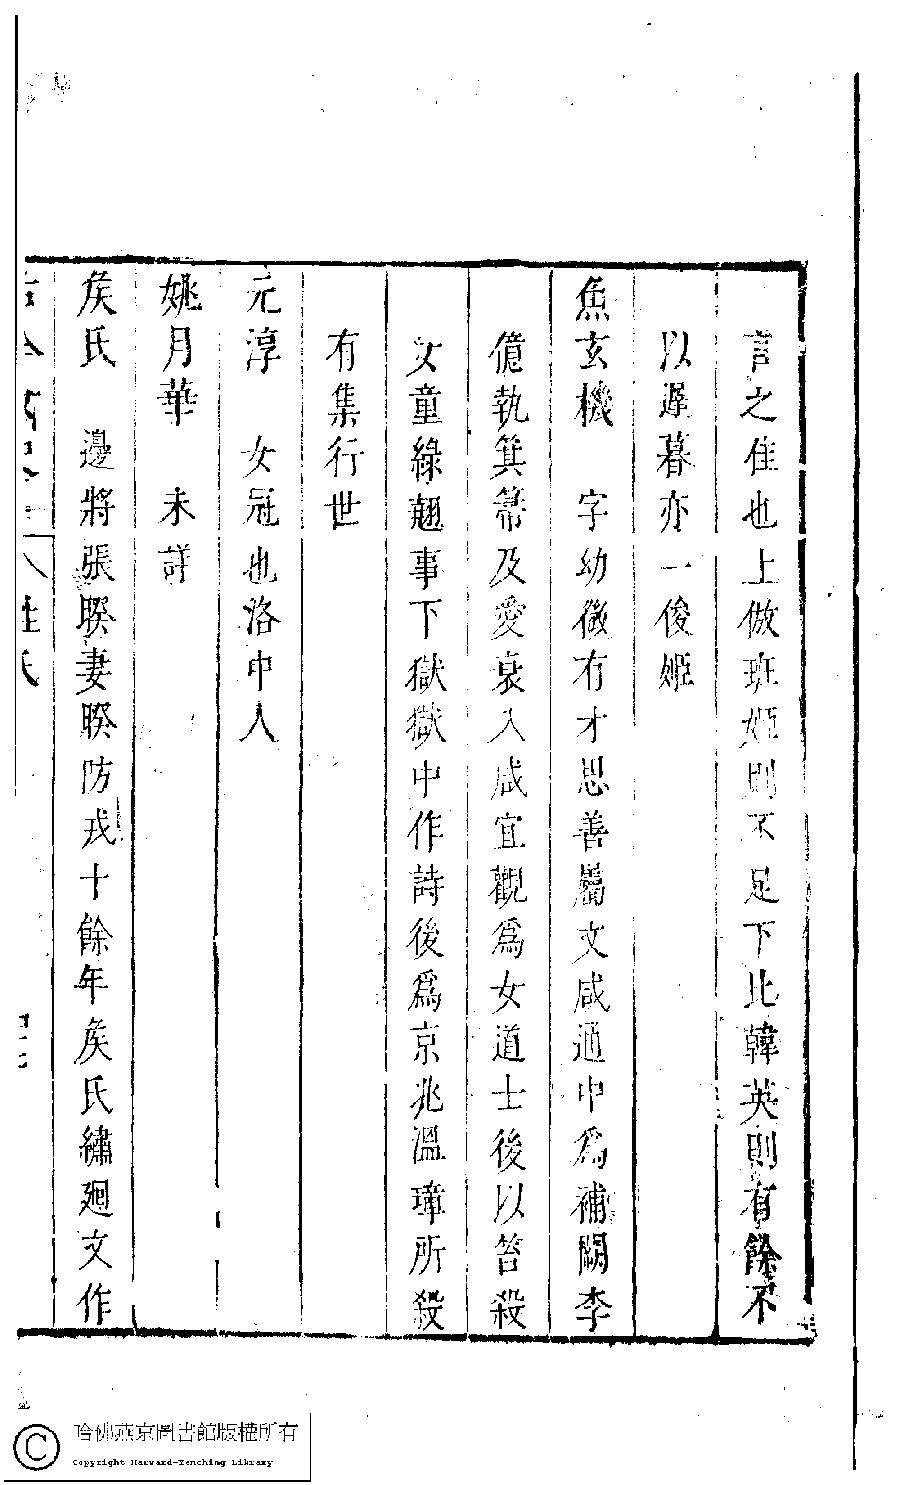 言之佳也上倣班姬則不足下比韓英則有餘不
以遲暮亦一俊姬
魚玄機　字幼微有才思善屬文咸通中爲補闕李
億執箕箒及愛衰入咸宜觀爲女道士後以笞殺
女童綠翹事下獄獄中作詩後爲京兆溫璋所殺
有集行世
元淳　女冠也洛中人
姚月華　未詳
矦氏　邊將張暌妻暌防戎十餘年矦氏繡廻文作
姓氏
哈佛燕京圖書館版權所有
Copyright Harvard-Yenching Library